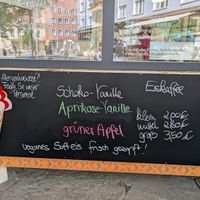 Schoko-Vanille
Aprikose-Vanille
grüner Apfel
veganes Softeis frisch gezapft!
Eiskaffee
klein 2,00€
mittel 2,80€
groß 3,50€